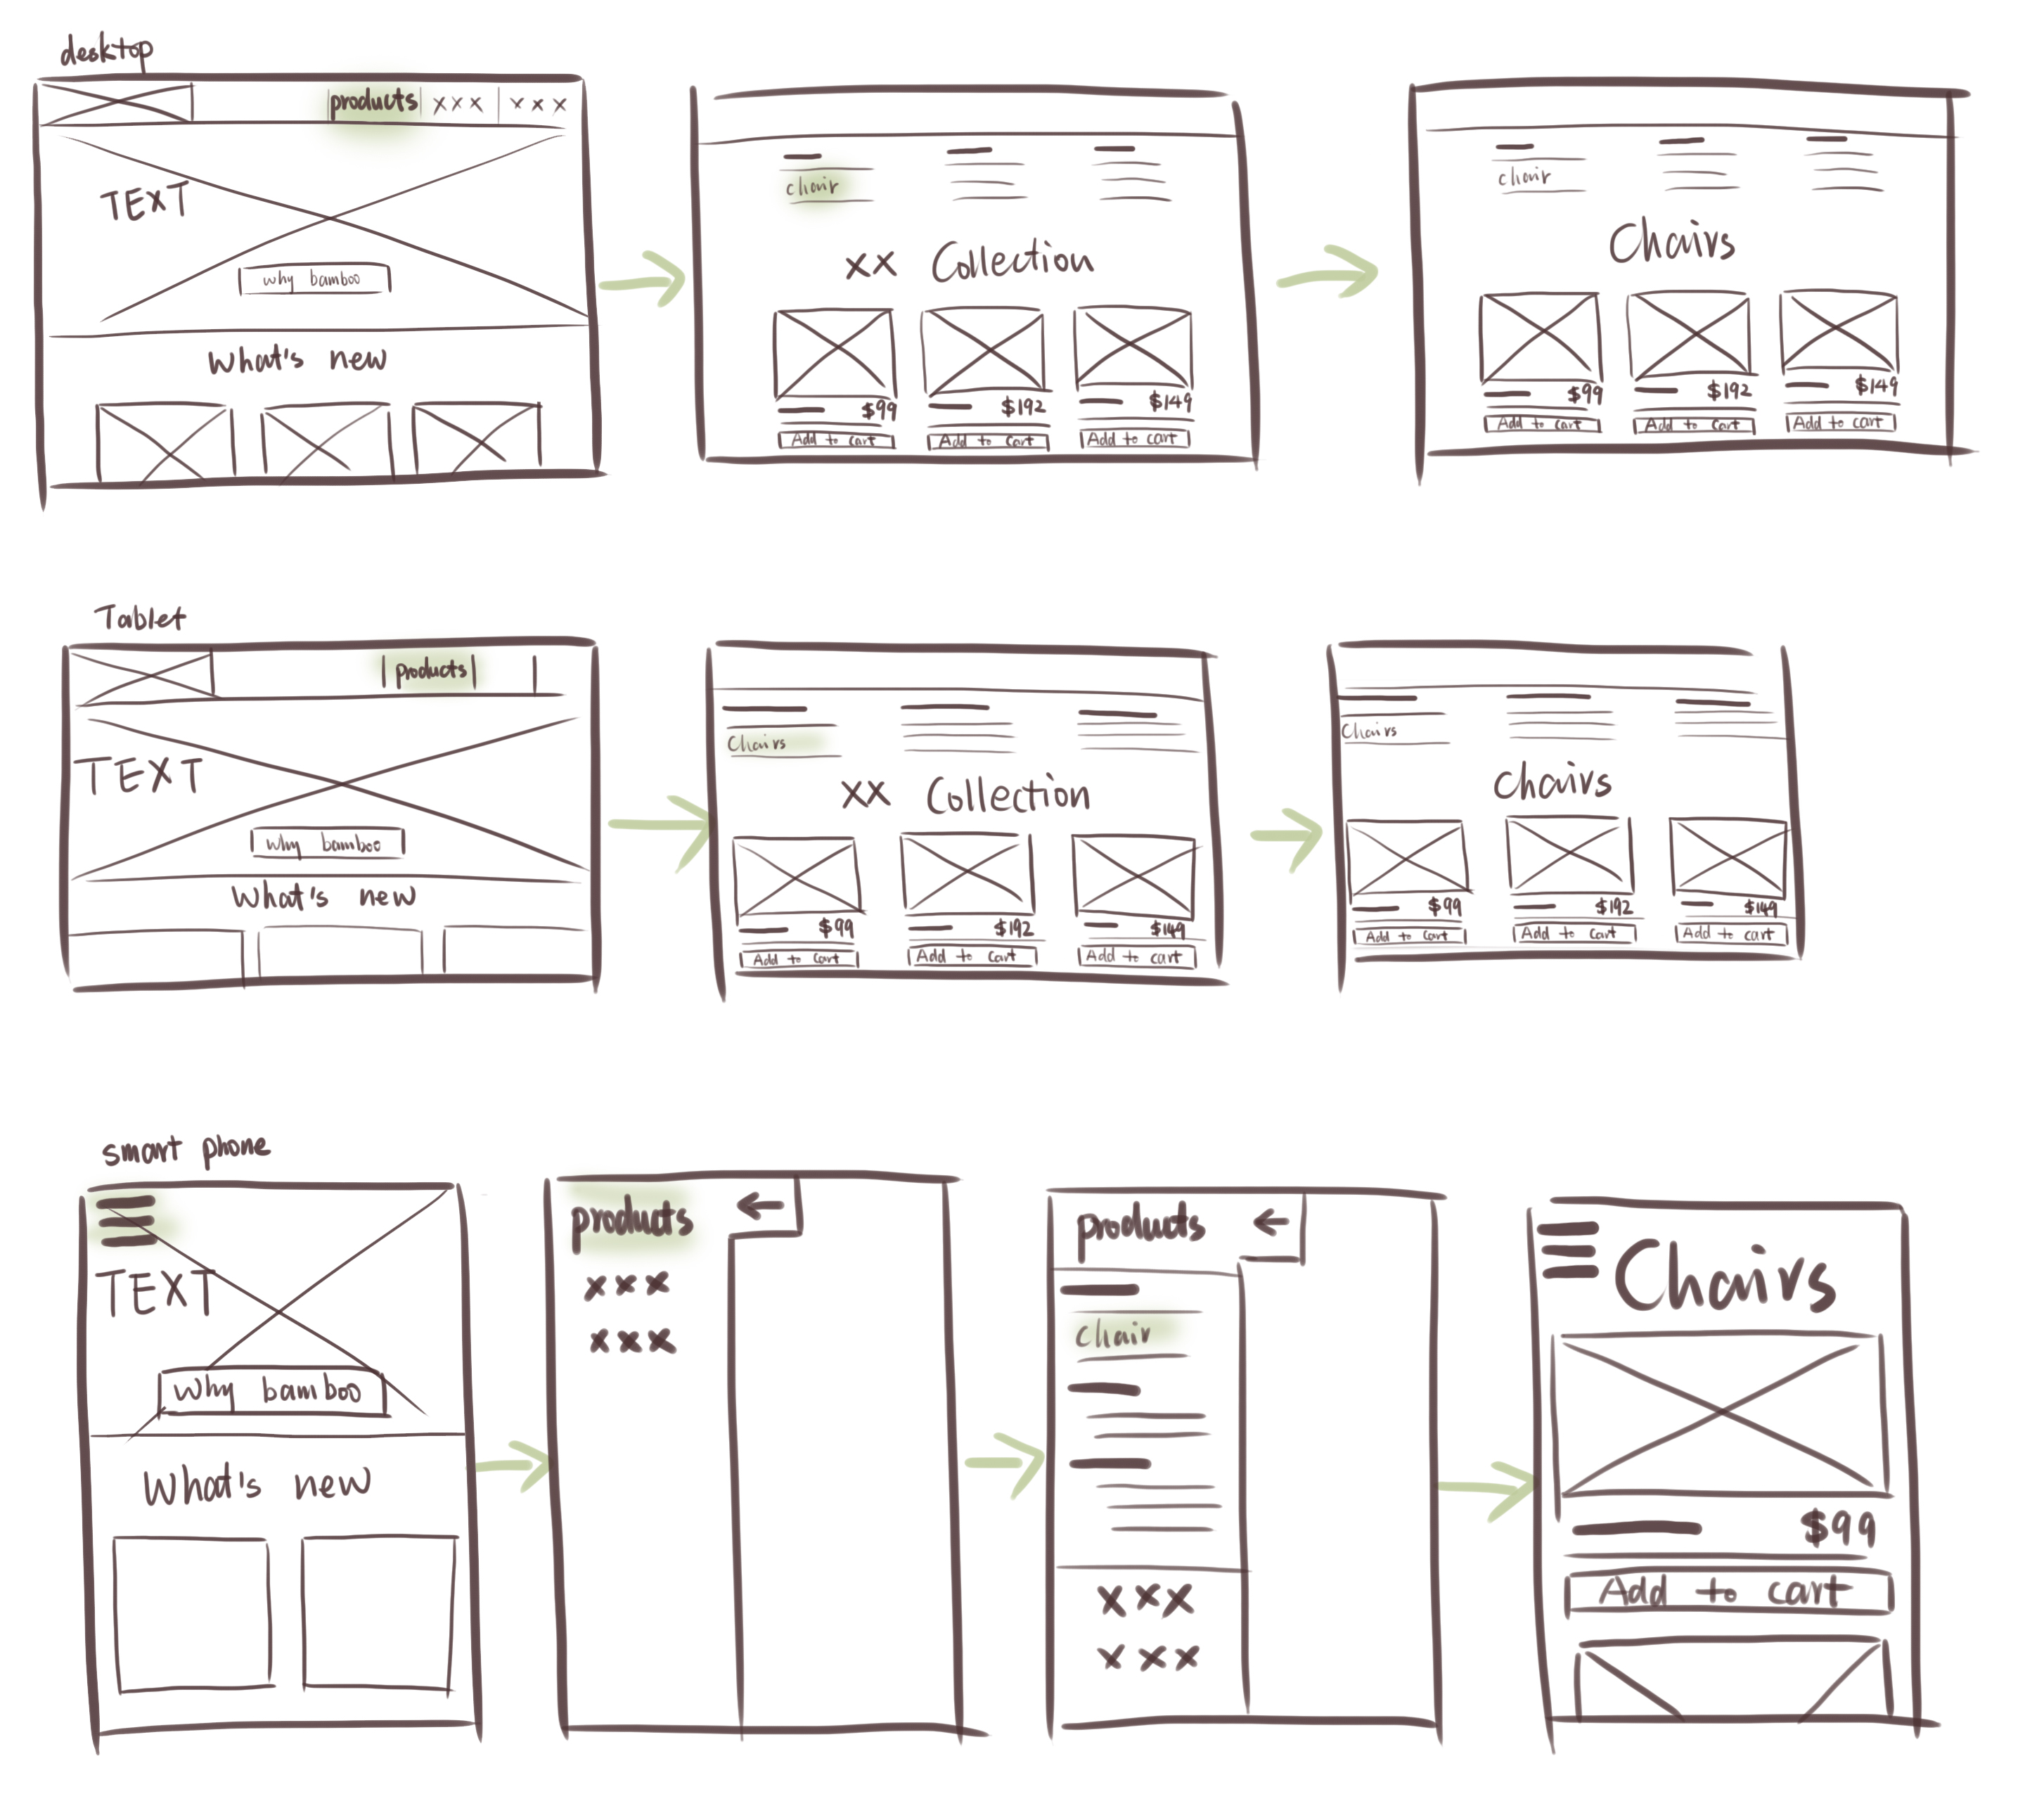 desktop
products xxx xxx
TEXT
why bamboo
what's new
chair
xx Collection
$99 $192 $149
Add to cart Add to cart Add to cart
chair
Chairs
$99 $192 $149
Add to cart Add to cart Add to cart
Tablet
products
TEXT
why bamboo
what's new
Chairs
xx Collection
$99 $192 $149
Add to cart Add to cart Add to cart
Chairs
Chairs
$99 $192 $149
Add to cart Add to cart Add to cart
smart phone
TEXT
why bamboo
What's new
products
xxx
xxx
products
chair
xxx
xxx
Chairs
$99
Add to cart